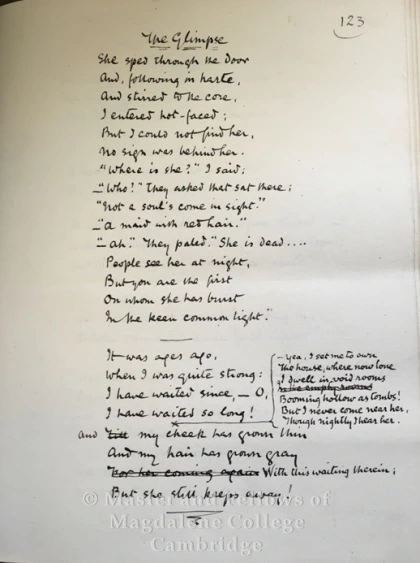 123
The Glimpse
She sped through the door
And, following in haste,
And stirred to the core,
I entered hot-faced;
But I could not find her,
No sign was behind her.
"Where is she?" I said;
—"Who?" They asked that sat there;
"Not a soul's come in sight."
—"A maid with red hair."
—"Ah." They paled. "She is dead....
People see her at night,
But you are the first
On whom she has burst
In the keen common light."
It was ages ago,
When I was quite strong:
I have waited since, — O,
I have waited so long!
– Yea, I set me to own
The house, where now lone
I dwell in void rooms
in the empty rooms
Booming hollow as tombs!
But I never come near her,
Though nightly I hear her.
And till my cheek has grown thin
And my hair has grown gray
For her coming again With this waiting therein;
But she still keeps away!
© Master and Fellows of
Magdalene College
Cambridge